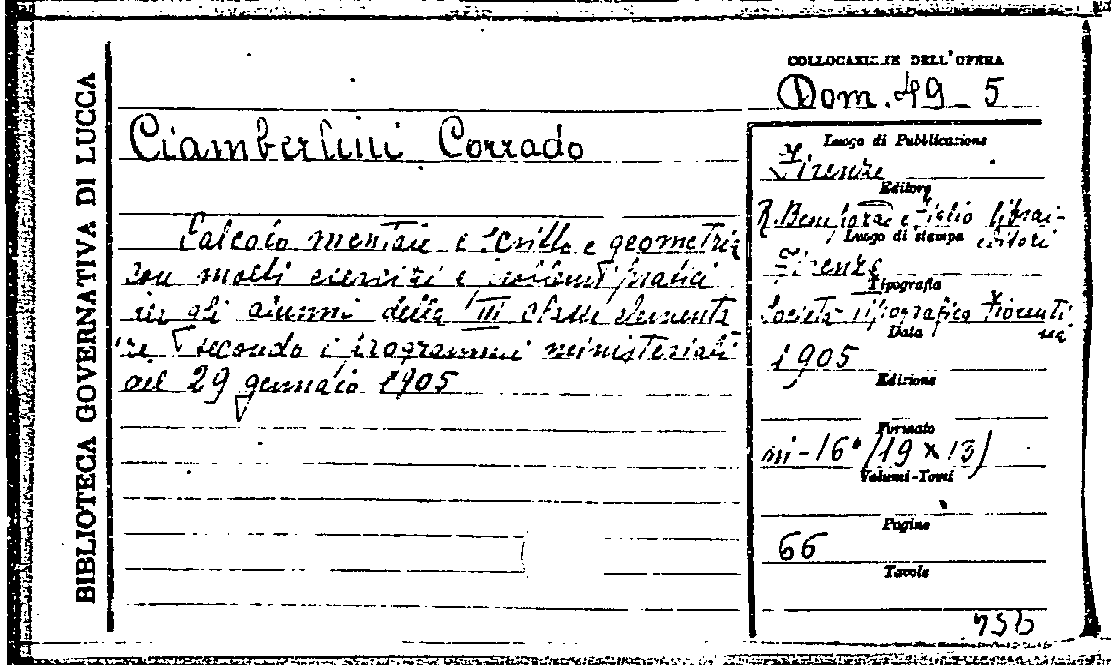 BIBLIOTECA GOVERNATIVA DI LUCCA
COLLOCAZIONE DELL'OPERA
Dom. 49 - 5
Ciamberlini Corrado
Calcolo mentale e scritto e geometria
con molti esercizi e problemi pratici
per gli alunni della III classe elementa
re secondo i programmi ministeriali
del 29 gennaio 1905
Luogo di Pubblicazione
Firenze
Editore
R. Bemporad e figlio librai-
editori
Luogo di stampa
Firenze
Tipografia
Società tipografica fiorenti
na
Data
1905
Edizione
Formato
in-16° (19 x 13)
Volumi-Tomi
Pagine
66
Tavole